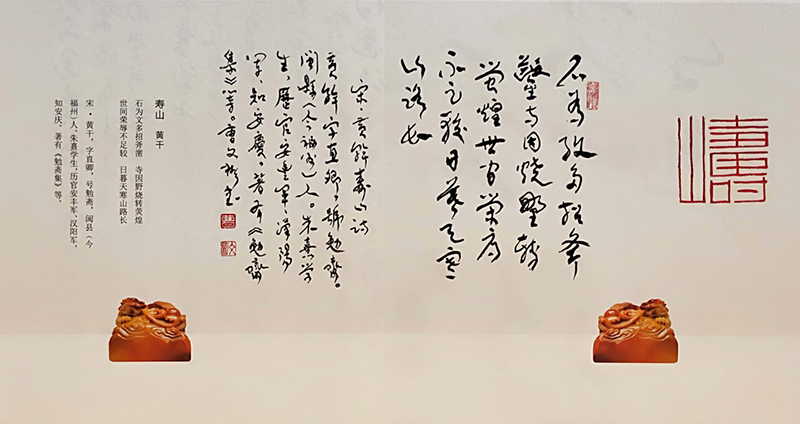 壽山
石为文多招斧
鑿寺因烧野转
莹煌世间荣辱
不足较日暮天寒
山路长
宋·黄榦寿山诗
黄榦,字直卿,号勉齋。
闽县(今福州)人。朱熹学
生,歷官安丰军、漢陽
军,知安慶。著有《勉齋
集》等。曹文
寿山 黄干
石为文多招斧凿 寺因野烧转荧煌
世间荣辱不足较 日暮天寒山路长
宋·黄干,字直卿,号勉斋,闽县(今
福州)人,朱熹学生,历官安丰军、汉阳军,
知安庆、著有《勉斋集》等。